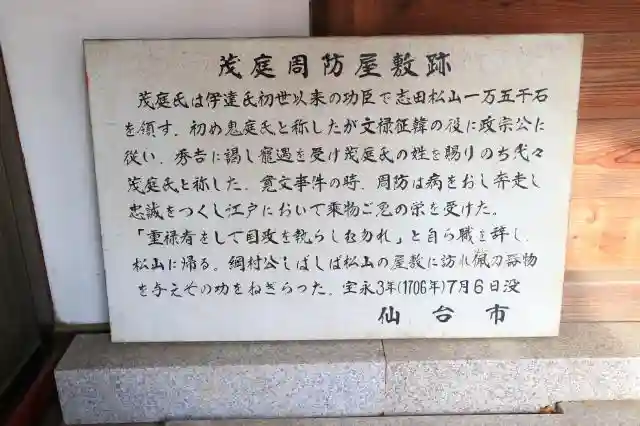 茂庭周防屋敷跡
茂庭氏は伊達氏初世以来の功臣で志田松山一万五千石
を領す。初め鬼庭氏と称したが文禄征韓の役に政宗公に
従い、秀吉に謁し寵遇を受け茂庭氏の姓を賜りのち代々
茂庭氏と称した。寛文事件の時、周防は病をおし奔走し
忠誠をつくし江戸において乗物ご免の栄を受けた。
「重禄者をして国政を執らしむ勿れ」と自ら職を辞し、
松山に帰る。綱村公しばしば松山の屋敷に訪れ佩刀器物
を与えその功をねぎらった。宝永3年(1706年)7月6日没
仙台市